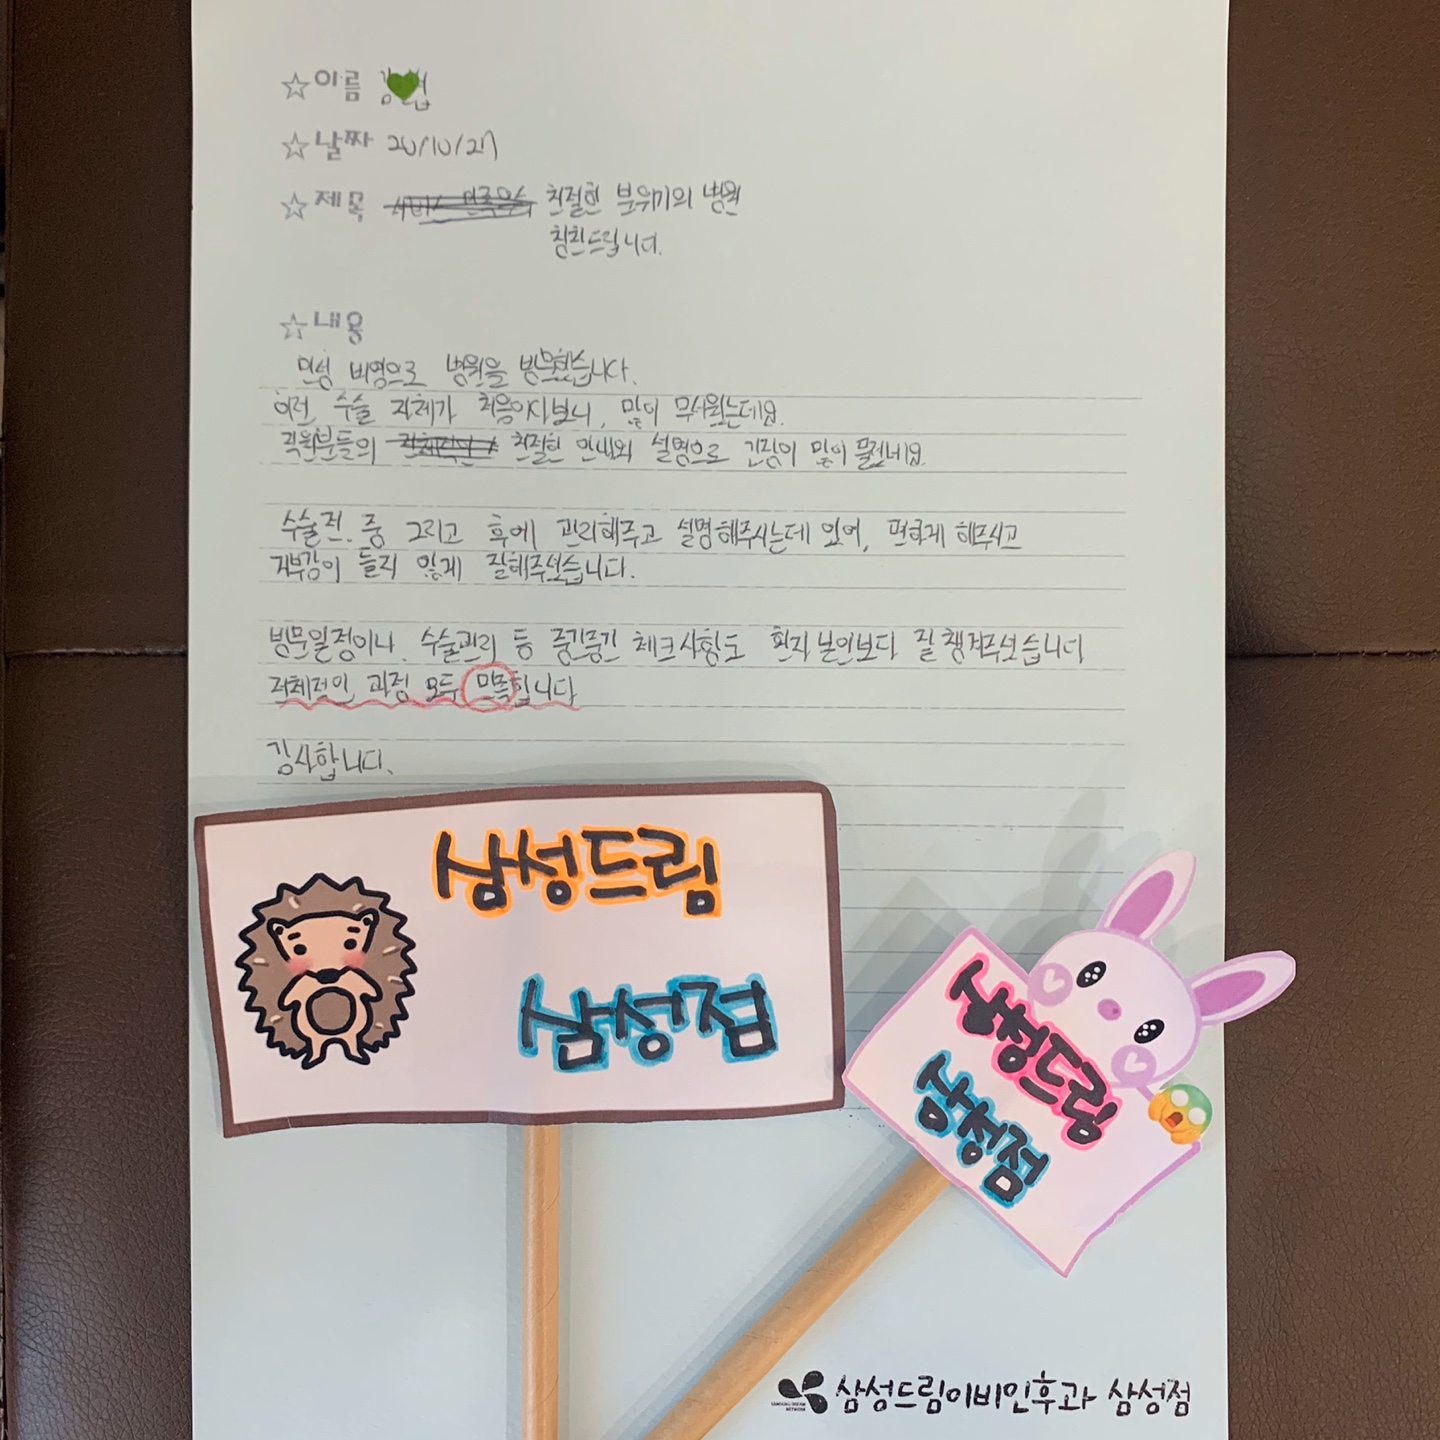 ☆이름 김
☆날짜 20/10/27
☆제목 친절한 분위기의 병원
칭찬드립니다.
☆내용
만성 비염으로 병원을 방문했습니다.
이런 수술 자체가 처음이다보니, 많이 무서웠는데요.
직원분들의 친절한 안내와 설명으로 긴장이 많이 풀렸네요.
수술전. 중 그리고 후에 관리해주고 설명해주시는데 있어, 편하게 해주시고
거부감이 들지 않게 잘해주셨습니다.
방문일정이나 수술관리 등 중간중간 체크사항도 환자 본인보다 잘 챙겨주셨습니다
전체적인 과정 모두 만족합니다
감사합니다.
삼성드림
삼성점
삼성드림
삼성점
SAMSUNG DREAM
NETWORK
삼성드림이비인후과 삼성점